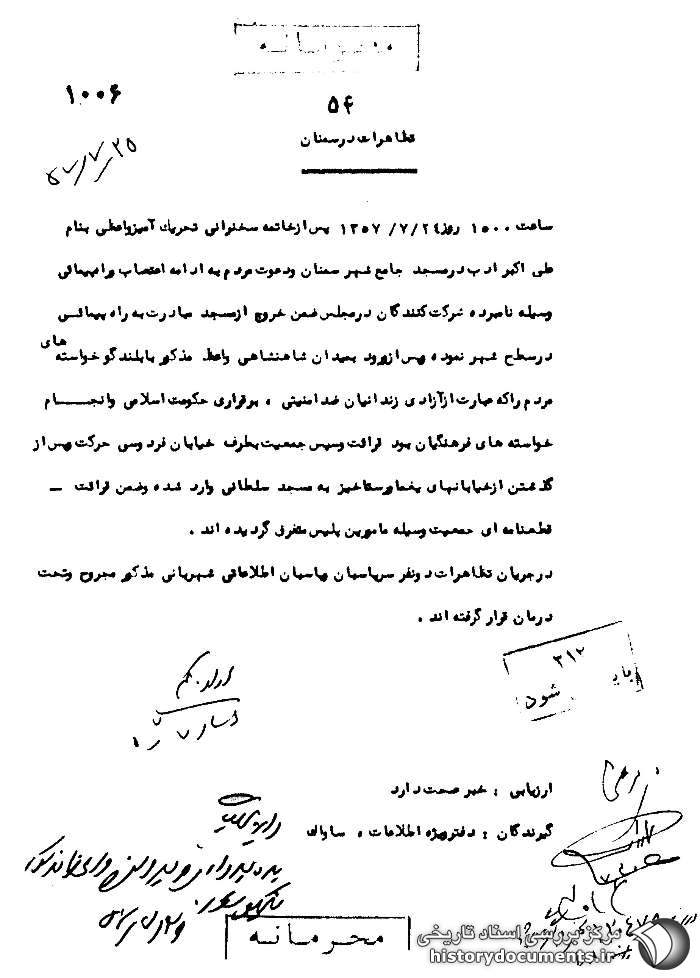 محرمانه
۱۰۰۶
۵۴
تظاهرات در سمنان
۵۷/۷/۲۵
ساعت ۱۵۰۰ روز ۱۳۵۷/۷/۲٤ پس از خاتمه سخنرانی تحریك آمیز واعظی بنام
علی اکبر ادب در مسجد جامع شهر سمنان ودعوت مردم به ادامه اعتصاب وراهپیمائی
وسیله نامبرده شرکت کنندگان در مجلس ضمن خروج از مسجد مبادرت به راه پیمائی
در سطح شهر نموده پس از ورود بمیدان شاهنشاهی واعظ مذکور با بلندگو خواسته های
مردم را که عبارت از آزادی زندانیان ضد امنیتی ، برقراری حکومت اسلامی وانجام
خواسته های فرهنگیان بود قرائت وسپس جمعیت بطرف خیابان فردوسی حرکت وپس از
گذشتن از خیابانهای یغما ورستاخیز به مسجد سلطانی وارد شده وضمن قرائت ـ
قطعنامه ای جمعیت وسیله مامورین پلیس متفرق گردیده اند .
در جریان تظاهرات دونفر سرپاسبان وپاسبان اطلاعاتی شهربانی مذکور مجروح وتحت
درمان قرار گرفته اند .
۳۱۲
شود
ارزیابی : خبر صحت دارد
گیرندگان : دفتر ویژه اطلاعات ، ساواك
محرمانه
مرکز بررسی اسناد تاریخی
historydocuments.ir